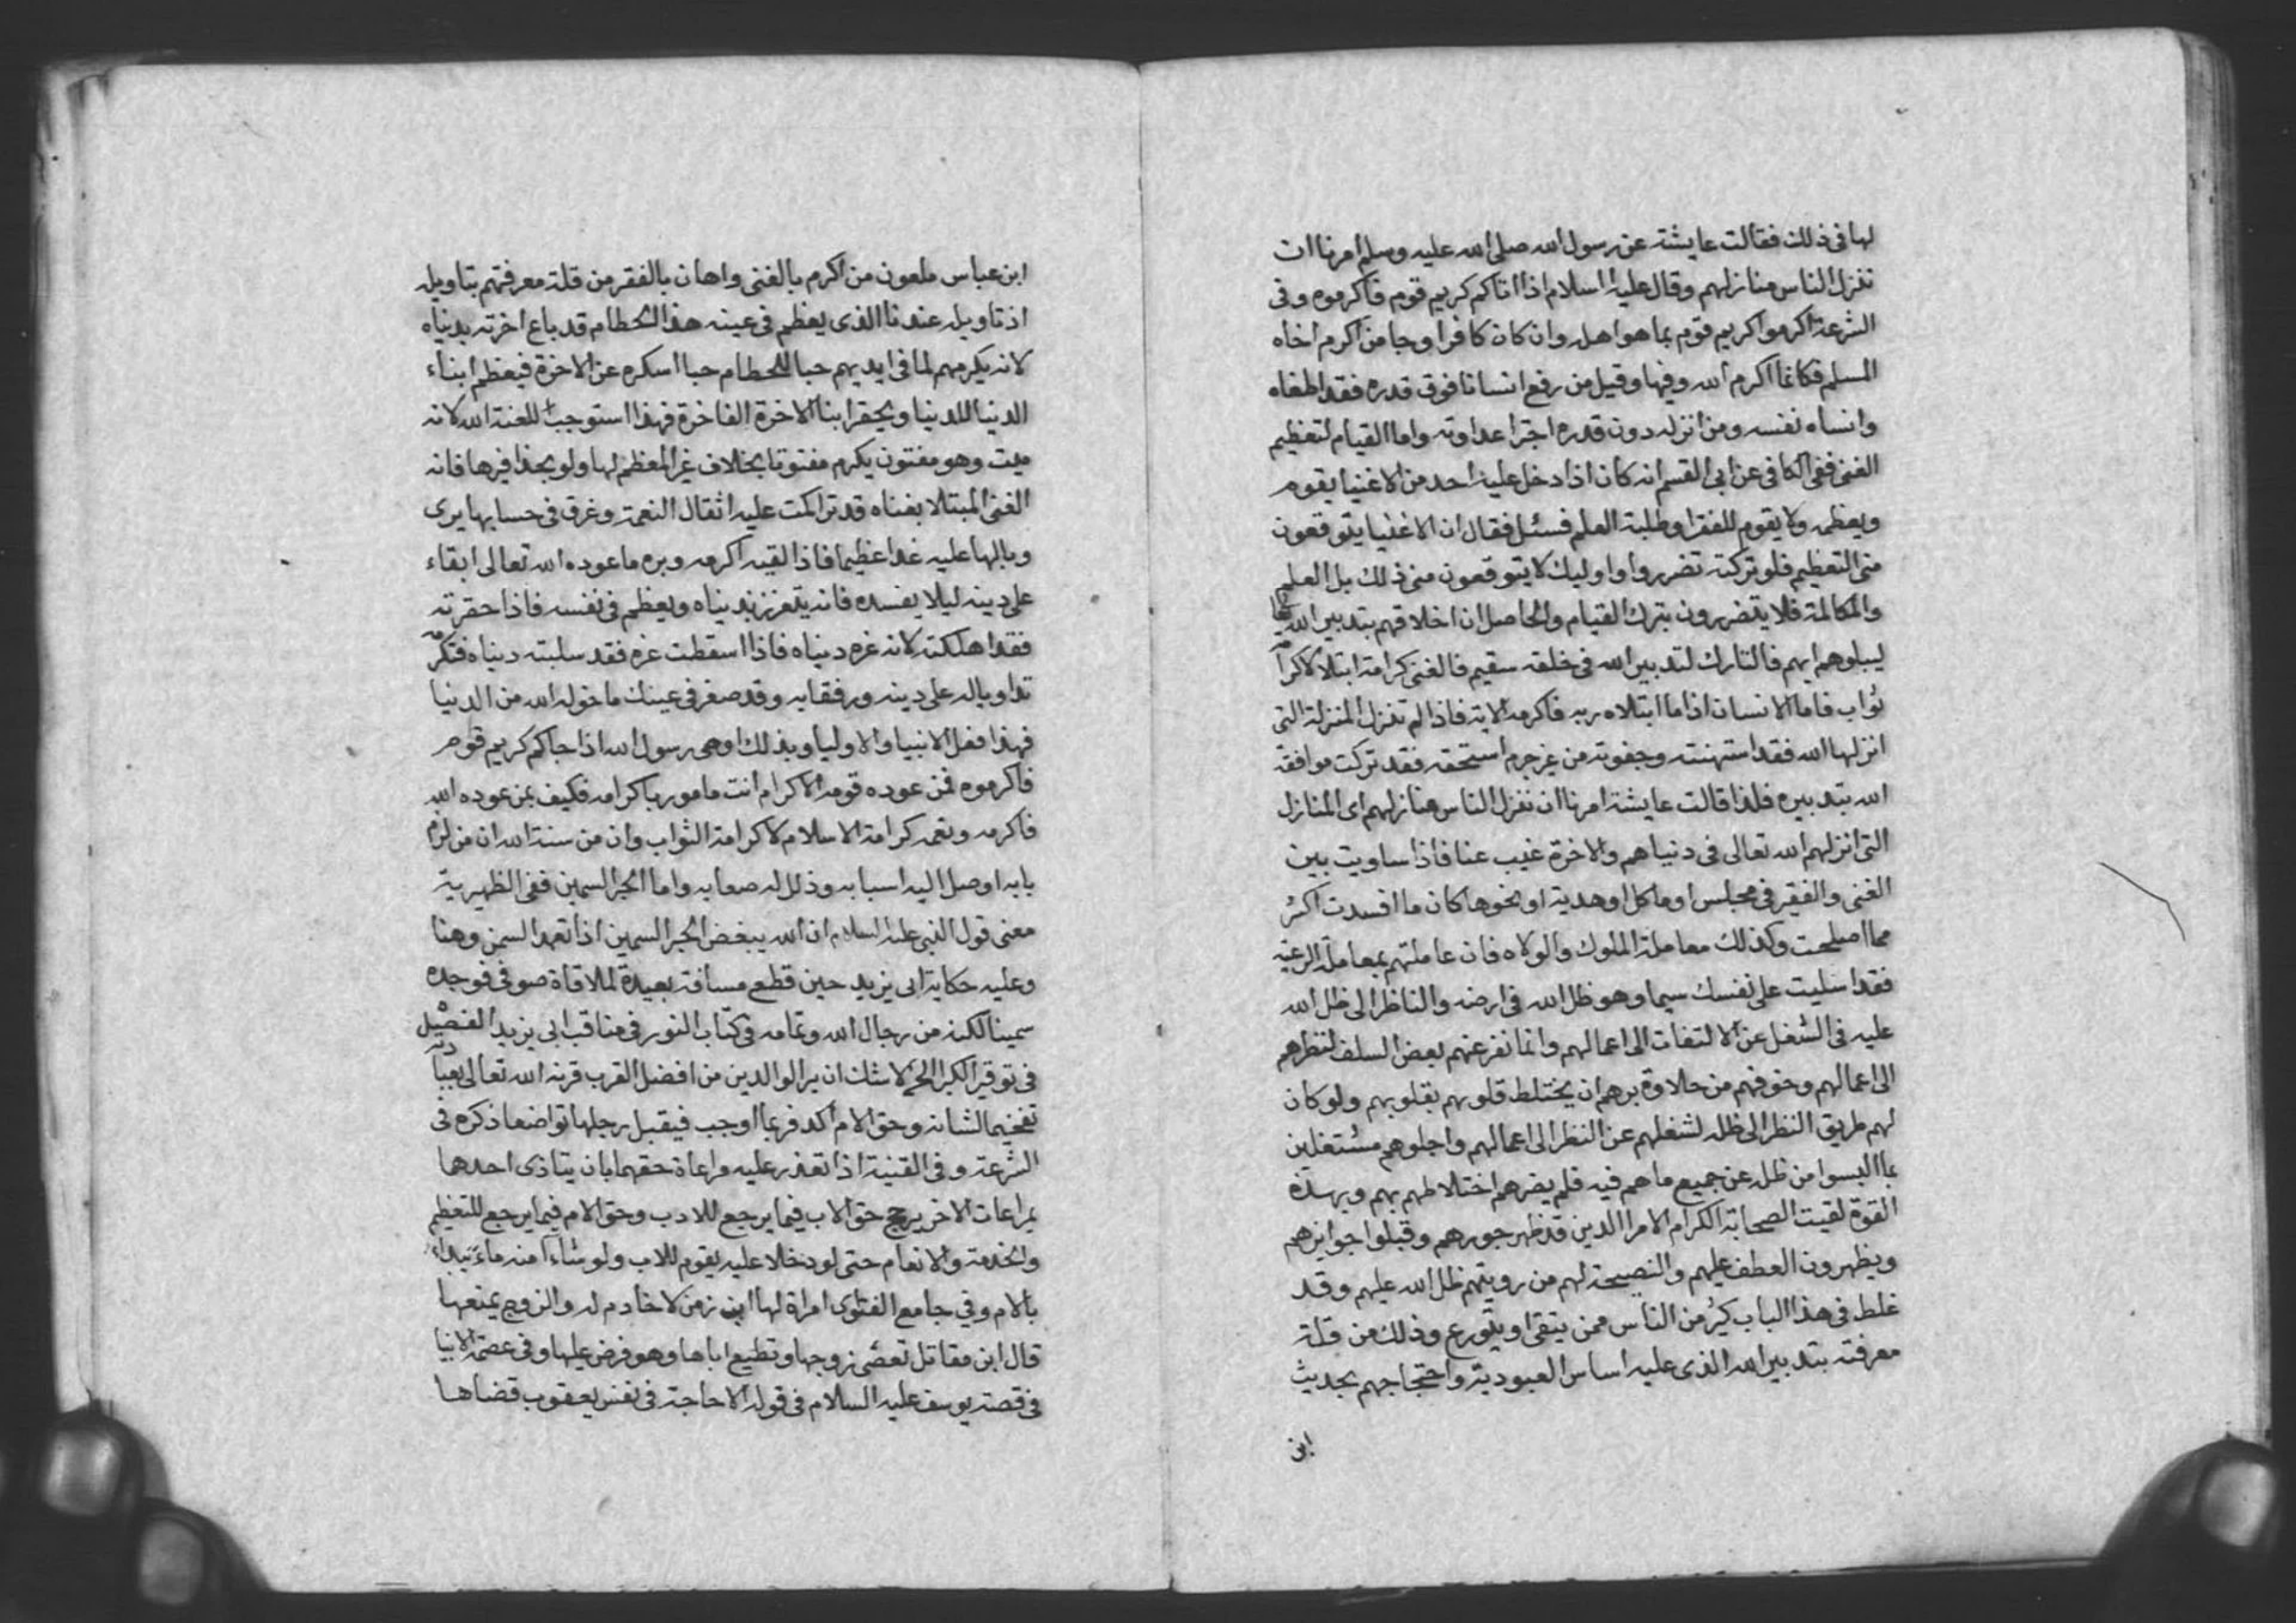 لها فى ذلك فقالت عايشة عن رسول الله صلى الله عليه وسلم امرنا ان
ننزل الناس منازلهم وقال عليه السلام اذا اتاكم كريم قوم فاكرموه وفى
الشرعة اكرموا كريم قوم بما هو اهله وان كان كافرا وجا من اكرم اخاه
المسلم فكانما اكرم الله وفيها وقيل من رفع انسانا فوق قدره فقد اطغاه
وانساه نفسه ومن انزله دون قدره اجترا عداوته واما القيام لتعظيم
الغنى ففى الكافى عن ابى القسم انه كان اذا دخل عليه احد من الاغنيا يقوم
ويعظمه ولا يقوم للفقرا وطلبة العلم فسئل فقال ان الاغنيا يتوقعون
منى التعظيم فلو تركته تضرروا واوليك لا يتوقعون منى ذلك بل العلم
والمكالمة فلا يتضررون بترك القيام والحاصل ان اخلاقهم بتدبير الله تعا
ليبلوهم ايهم فالتارك لتدبير الله فى خلقه سقيم فالغنى كرامة ابتلا لا كرامة
ثواب فاما الانسان اذا ما ابتلاه ربه فاكرمه الاية فاذا لم تنزل المنزلة التى
انزلها الله فقد استهنته وجفوته من غير جرم استحقه فقد تركت موافقة
الله بتدبيره فلذا قالت عايشة امرنا ان ننزل الناس منازلهم اى المنازل
التى انزلهم الله تعالى فى دنياهم والاخرة غيب عنا فاذا ساويت بين
الغنى والفقير فى مجلس او ماكل او هدية او نحوها كان ما افسدت اكثر
مما اصلحت وكذلك معاملة الملوك والولاه فان عاملتهم بمعاملة الرعية
فقد اسليت على نفسك سيما وهو ظل الله فى ارضه والناظر الى ظل الله
عليه فى الشغل عن الالتفات الى اعمالهم وانما نفر عنهم بعض السلف لنظرهم
الى اعمالهم وخوفهم من حلاوة برهم ان يختلط قلوبهم بقلوبهم ولو كان
لهم طريق النظر الى ظله لشغلهم عن النظر الى اعمالهم واجلوهم مشتغلين
بما البسوا من ظله عن جميع ما هم فيه فلم يضرهم اختلاطهم بهم وبهذه
القوة لقيت الصحابة الكرام الامرا الذين قد ظهر جورهم وقبلوا جوايزهم
ويظهرون العطف عليهم والنصيحة لهم من رويتهم ظل الله عليهم وقد
غلط فى هذا الباب كثير من الناس ممن يتقى او يتورع وذلك من قلة
معرفته بتدبير الله الذى عليه اساس العبودية واحتجاجهم بحديث
ابن
ابن عباس ملعون من اكرم بالغنى واهان بالفقر من قلة معرفتهم بتاويله
اذ تاويله عندنا الذى يعظم فى عينه هذا الحطام قد باع اخرته بدنياه
لانه يكرمهم لما فى ايديهم حبا للحطام حبا اسكره عن الاخرة فيعظم ابناء
الدنيا للدنيا ويحقر ابنا الاخرة الفاخرة فهذا استوجب للعنة الله لانه
ميت وهو مفتون يكرم مفتونا بخلاف غير المعظم لها ولو بحذافيرها فانه
الغنى المبتلا بغناه قد تراكمت عليه اثقال النعمة وغرق فى حسابها يرى
وبالها عليه غدا عظيما فاذا لقيه اكرمه وبره ما عوده الله تعالى ابقاء
على دينه ليلا يفسده فانه يتعزز بدنياه ويعظم فى نفسه فاذا حقرته
فقد اهلكته لانه غره دنياه فاذا اسقطت عزه فقد سلبته دنياه فتكرمه
تداويا له على دينه ورفقا به وقد صغر فى عينك ما خوله الله من الدنيا
فهذا فعل الانبيا والاوليا وبذلك اوصى رسول الله اذا جاكم كريم قوم
فاكرموه فمن عوده قومه الاكرام انت مامور باكرامه فكيف بمن عوده الله
فاكرمه ونعمه كرامة الاسلام لا كرامة الثواب وان من سنة الله ان من لزم
بابه اوصل اليه اسبابه وذلل له صعابه واما الحبر السمين ففى الظهيرية
معنى قول النبى عليه السلام ان الله يبغض الحبر السمين اذا تعمد السمن وهنا
وعليه حكاية ابى يزيد حين قطع مسافة بعيدة لملاقاة صوفى فوجده
سمينا لكنه من رجال الله وتمامه فى كتاب النور فى مناقب ابى يزيد الفصل
فى توقير الكبرا لا شك ان بر الوالدين من افضل القرب قرنه الله تعالى بعبادته
تفخيما لشانه وحق الام اكد فربما اوجب فيقبل رجلها تواضعا ذكره فى
الشرعة وفى القنية اذا تعذر عليه مراعاة حقهما بان يتاذى احدها
بمراعات الاخر يرجح حق الاب فيما يرجع للادب وحق الام فيما يرجع للتعظيم
والخدمة والانعام حتى لو دخلا عليه يقوم للاب ولو شاءا منه ماء يبداء
بالام وفي جامع الفتاوى امراة لها ابن زمن لا خادم له والزوج يمنعها
قال ابن مقاتل تعصى زوجها وتطيع اباها وهو فرض عليها وفى عصمة الانبيا
فى قصة يوسف عليه السلام فى قوله الا حاجة فى نفس يعقوب قضاها